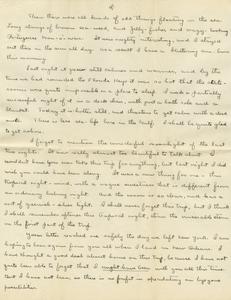 There were all kinds of odd things floating in the sea.
Long strings of brown sea-weed, and jelly fishes and angry looking
Portuguese Men-o'-war. It was roughly interesting, and I stayed
out this in the sun all day. As a result I have a blistering sun-burn
this morning.
Last night it grew still calmer and warmer, and by the
time we had rounded the Florida Keys it was so hot that the state-
rooms were quite impossible as a place to sleep. I made a partially
successful night of it on a deck chair, with just a bath robe and a
blanket. Today it is hotter still, and threatens to get calm with a dead
There is less sea life here in the Gulf. I shall be quite glad
to get ashore.
I forgot to mention the wonderful moonlight of the last
two nights. It was really almost too beautiful to talk about. I
wouldn't have you take this trip for anything, but last night I did
wish you could have been along. It was a new thing for me - this
tropical night - and, with a vague uneasiness that is different from
an ordinary balmy night. And the moon is so clear, and has a
sort of greenish-blue light. I shall never forget this trip, but I think
I shall remember oftenest this tropical night, and the miserable storm
in the first part of the trip.
Your letter reached me safely the day we left New York. I am
hoping to hear again from you all when I land in New Orleans. I
have thought a good deal about home on this trip, because I have not
quite been able to forget that I might have been with you all this time.
But I was not born, so there is no profit in speculating on bygone
possibilities.